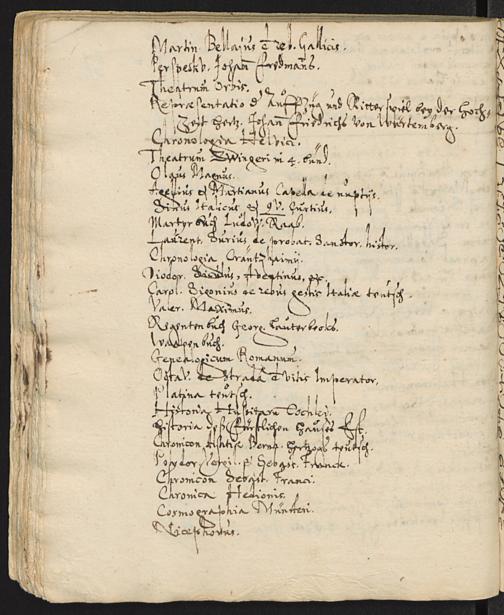 Martin Bellajus de reb. Gallicis.
Perspectiv. Johan Fredmans.
Theatrum Orbis.
Repraesentatio der Auffzüg und Ritterspiel bey der Hochz
Zeit Hertz. Johan Friedrichs von Würtemberg.
Chronologia Helvici.
Theatrum Zwingeri in 4. bünd.
Olaus Magnus.
Martianus Capella de nuptijs.
Silius Italicus, Curtius.
Martyrbuch Ludov. Raab.
Laurent. Surius, de probat. Sanctor. histor.
Chronologia Crantzhaimij
Diodor. Siculus, Aventinus,
Carol. Sigonius de rebus gestis Italiae teutsch.
Valer. Maximus.
Regentenbuch Georg. Lauterbecks.
Wappenbuch.
Genealogicum Romanum.
Octav. de Strada de vitis Imperator.
Platina teutsch.
Historia Hussitarum Cochlei.
Historia deß Fürstlichen Hauses Est.
Chronicon Alsatiae Bernh. Hertzogs teutsch.
Polydor. Vergil. Sebast. Franck.
Chronicon Sebast. Franci.
Chronica Hedionis.
Cosmographia Münsteri.
Nicephorus.